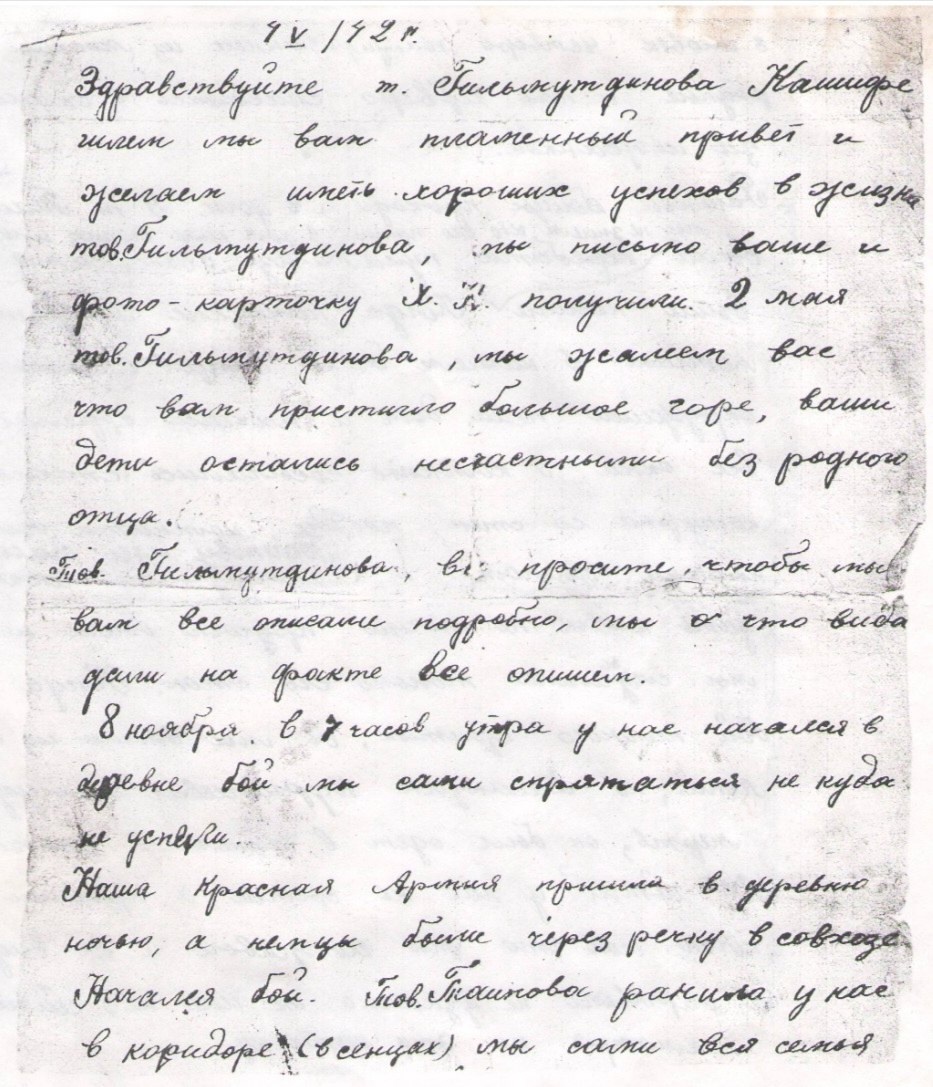 4 V /42 г
Здравствуйте т. Гильмутдинова Кашифе
шлем мы вам пламенный привет и
желаем иметь хороших успехов в жизни
тов. Гильмутдинова, мы письмо ваше и
фото-карточку Х. получили 2 мая
тов. Гильмутдинова, мы жалеем вас
что вам пристигло большое горе, ваши
дети остались несчастными без родного
отца.
Тов. Гильмутдинова, вы просите, чтобы мы
вам все описали подробно, мы что вида
дали на факте все опишем.
8 ноября в 7 часов утра у нас начался в
деревне бой мы сами спрятаться не куда
не успели.
Наша Красная Армия пришла в деревню
ночью, а немцы были через речку в совхозе
Начался бой. Тов. Таипова ранило у нас
в коридоре (в сенцах) мы сами вся семья